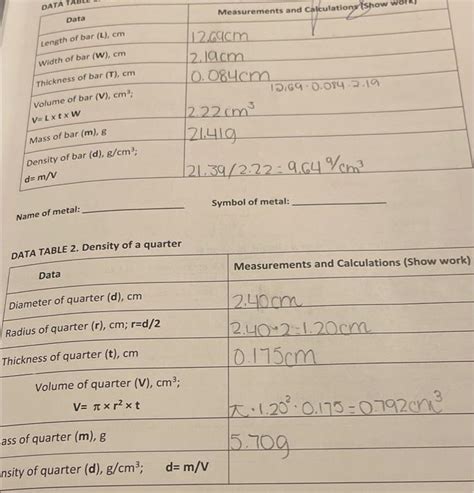 DATA TABLE
Data
Measurements and Calculations (Show work)
Length of bar (L), cm
12.69cm
Width of bar (W), cm
2.19cm
Thickness of bar (T), cm
0.084cm
Volume of bar (V), cm³;
V= L x t x W
12.69·0.084·2.19
2.22cm³
Mass of bar (m), g
21.41g
Density of bar (d), g/cm³;
d= m/V
21.39/2.22=9.64g/cm³
Name of metal:
Symbol of metal:
DATA TABLE 2. Density of a quarter
Data
Measurements and Calculations (Show work)
Diameter of quarter (d), cm
2.40cm
Radius of quarter (r), cm; r=d/2
2.40÷2=1.20cm
Thickness of quarter (t), cm
0.175cm
Volume of quarter (V), cm³;
V= π x r² x t
π·1.20²·0.175=0.792cm³
ass of quarter (m), g
5.70g
nsity of quarter (d), g/cm³; d= m/V